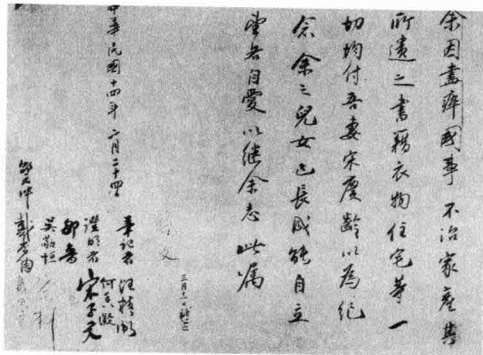 余因盡瘁國事不治家產其
所遺之書籍衣物住宅等一
切均付吾妻宋慶齡以為紀
念余之兒女已長成能自立
望各自愛以繼余志此屬
孫文
三月十一日補簽
中華民國十四年二月二十四日
筆記者 汪精衛
何香凝
證明者 宋子文
邵元冲
吳敬恒
戴季陶